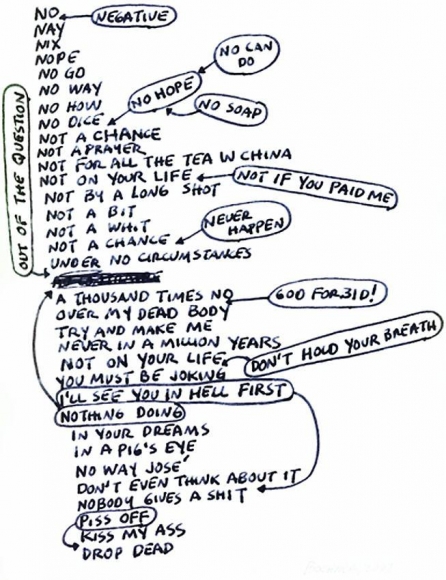 NO
NEGATIVE
NAY
NIX
NOPE
NO GO
NO WAY
NO HOW
NO DICE
NO HOPE
NO CAN
DO
NO SOAP
NOT A CHANCE
NOT A PRAYER
NOT FOR ALL THE TEA IN CHINA
NOT ON YOUR LIFE
NOT IF YOU PAID ME
NOT BY A LONG SHOT
NOT A BIT
NOT A WHIT
NOT A CHANCE
NEVER
HAPPEN
UNDER NO CIRCUMSTANCES
OUT OF THE QUESTION
A THOUSAND TIMES NO
GOD FORBID!
OVER MY DEAD BODY
TRY AND MAKE ME
NEVER IN A MILLION YEARS
NOT ON YOUR LIFE
DON'T HOLD YOUR BREATH
YOU MUST BE JOKING
I'LL SEE YOU IN HELL FIRST
NOTHING DOING
IN YOUR DREAMS
IN A PIG'S EYE
NO WAY JOSE'
DON'T EVEN THINK ABOUT IT
NOBODY GIVES A SHIT
PISS OFF
KISS MY ASS
DROP DEAD